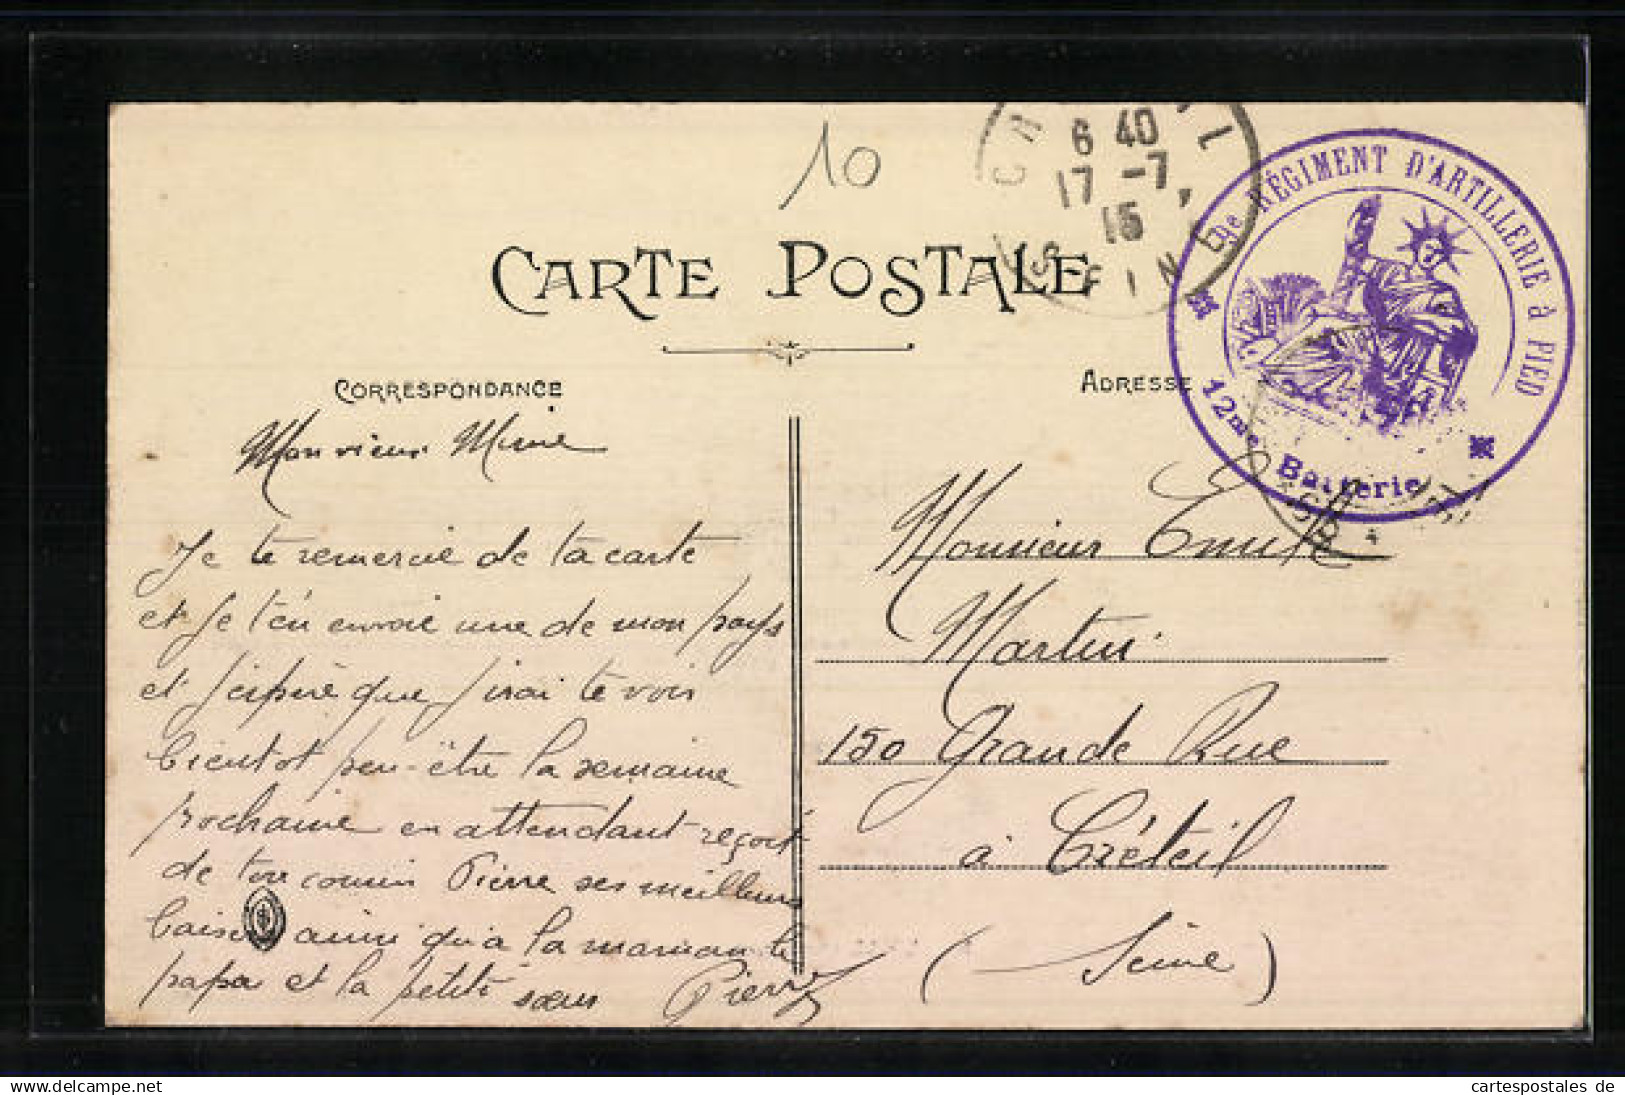 10
6 40
17 -7
15
SEINE
RÉGIMENT D'ARTILLERIE à PIED
12me Batterie
CARTE POSTALE
CORRESPONDANCE
ADRESSE
Monsieur Mimie
Je te remercie de ta carte
et je t'en envoie une de mon pays
et j'espère que j'irai te voir
bientot peu-être la semaine
prochaine en attendant reçoit
de ton cousin Pierre ses meilleurs
baiser ainsi qu'a la maman te
papa et la petite sœur Pierre
Monsieur Emile
Martin
150 Grande Rue
à Créteil
(Seine)
cartespostales de